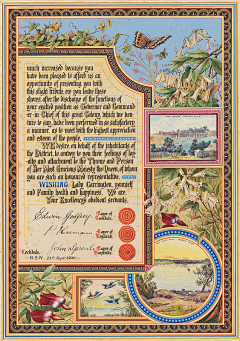 much increased because you
have been pleased to afford us an
opportunity of presenting you with
this slight tribute, ere you leave these
shores, after the discharge of the functions of
your exalted position as Governor and Command-
er-in-Chief of this great Colony, which we ven-
ture to say, have been performed in so satisfactory
a manner, as to meet with the highest appreciation
and esteem of the people.
WE desire, on behalf of the inhabitants of
the District, to convey to you their feelings of loy-
alty and attachment to the Throne and Person
of Her Most Gracious Majesty the Queen, of whom
you are such an honoured representative.
WISHING Lady Carrington, yourself
and Family health and happiness. We are
Your Excellency's obedient servants,
Edwin Godfrey Mayor of
P Kirwan Mayor of
John Mayor of
Rockdale,
N.S.W. Sept 1890